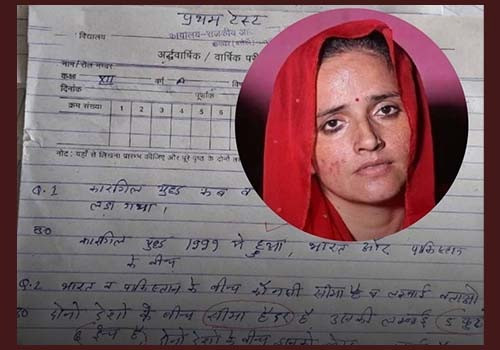 प्रथम टेस्ट
विद्यालय कार्यालय-राजकीय
अर्द्धवार्षिक / वार्षिक
नाम/रोल नम्बर
कक्षा XII वर्ग A
दिनांक पूर्णांक
क्रम संख्या 1 2 3 4 5 6 7
नोट: यहाँ से लिखना प्रारम्भ कीजिए और पूरे पृष्ठ के दोनों
Q.1 कारगिल युद्ध कब व
लड़ा गया।
उ0 कारगिल युद्ध 1999 मे हुआ, भारत और पाकिस्तान
के बीच
Q.2 भारत व पाकिस्तान के बीच कौनसी सीमा है व लम्बाई बताओ
उ0 दोनो देशो के बीच सीमा हैदर है उसकी लम्बाई 5 फुट
6 ईन्च है, दोनो देशो के बीच